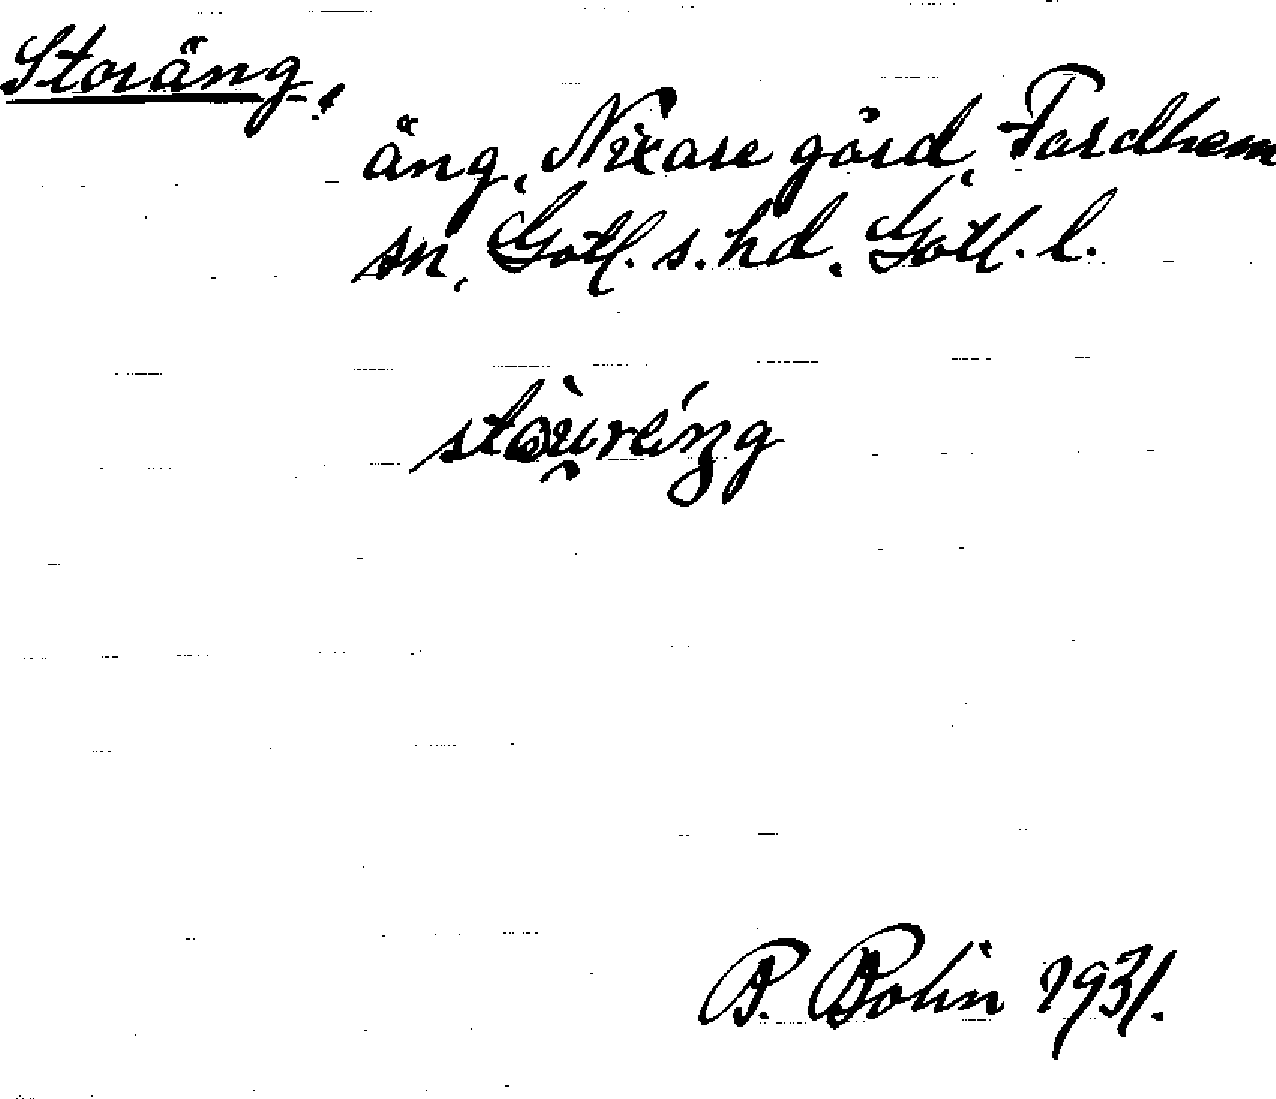 Storäng,
äng, Nixare gård, Fardhem
sn, Gotl. s. hd. Gotl. l.
stòu̯réŋg
P. Bolin 1931.